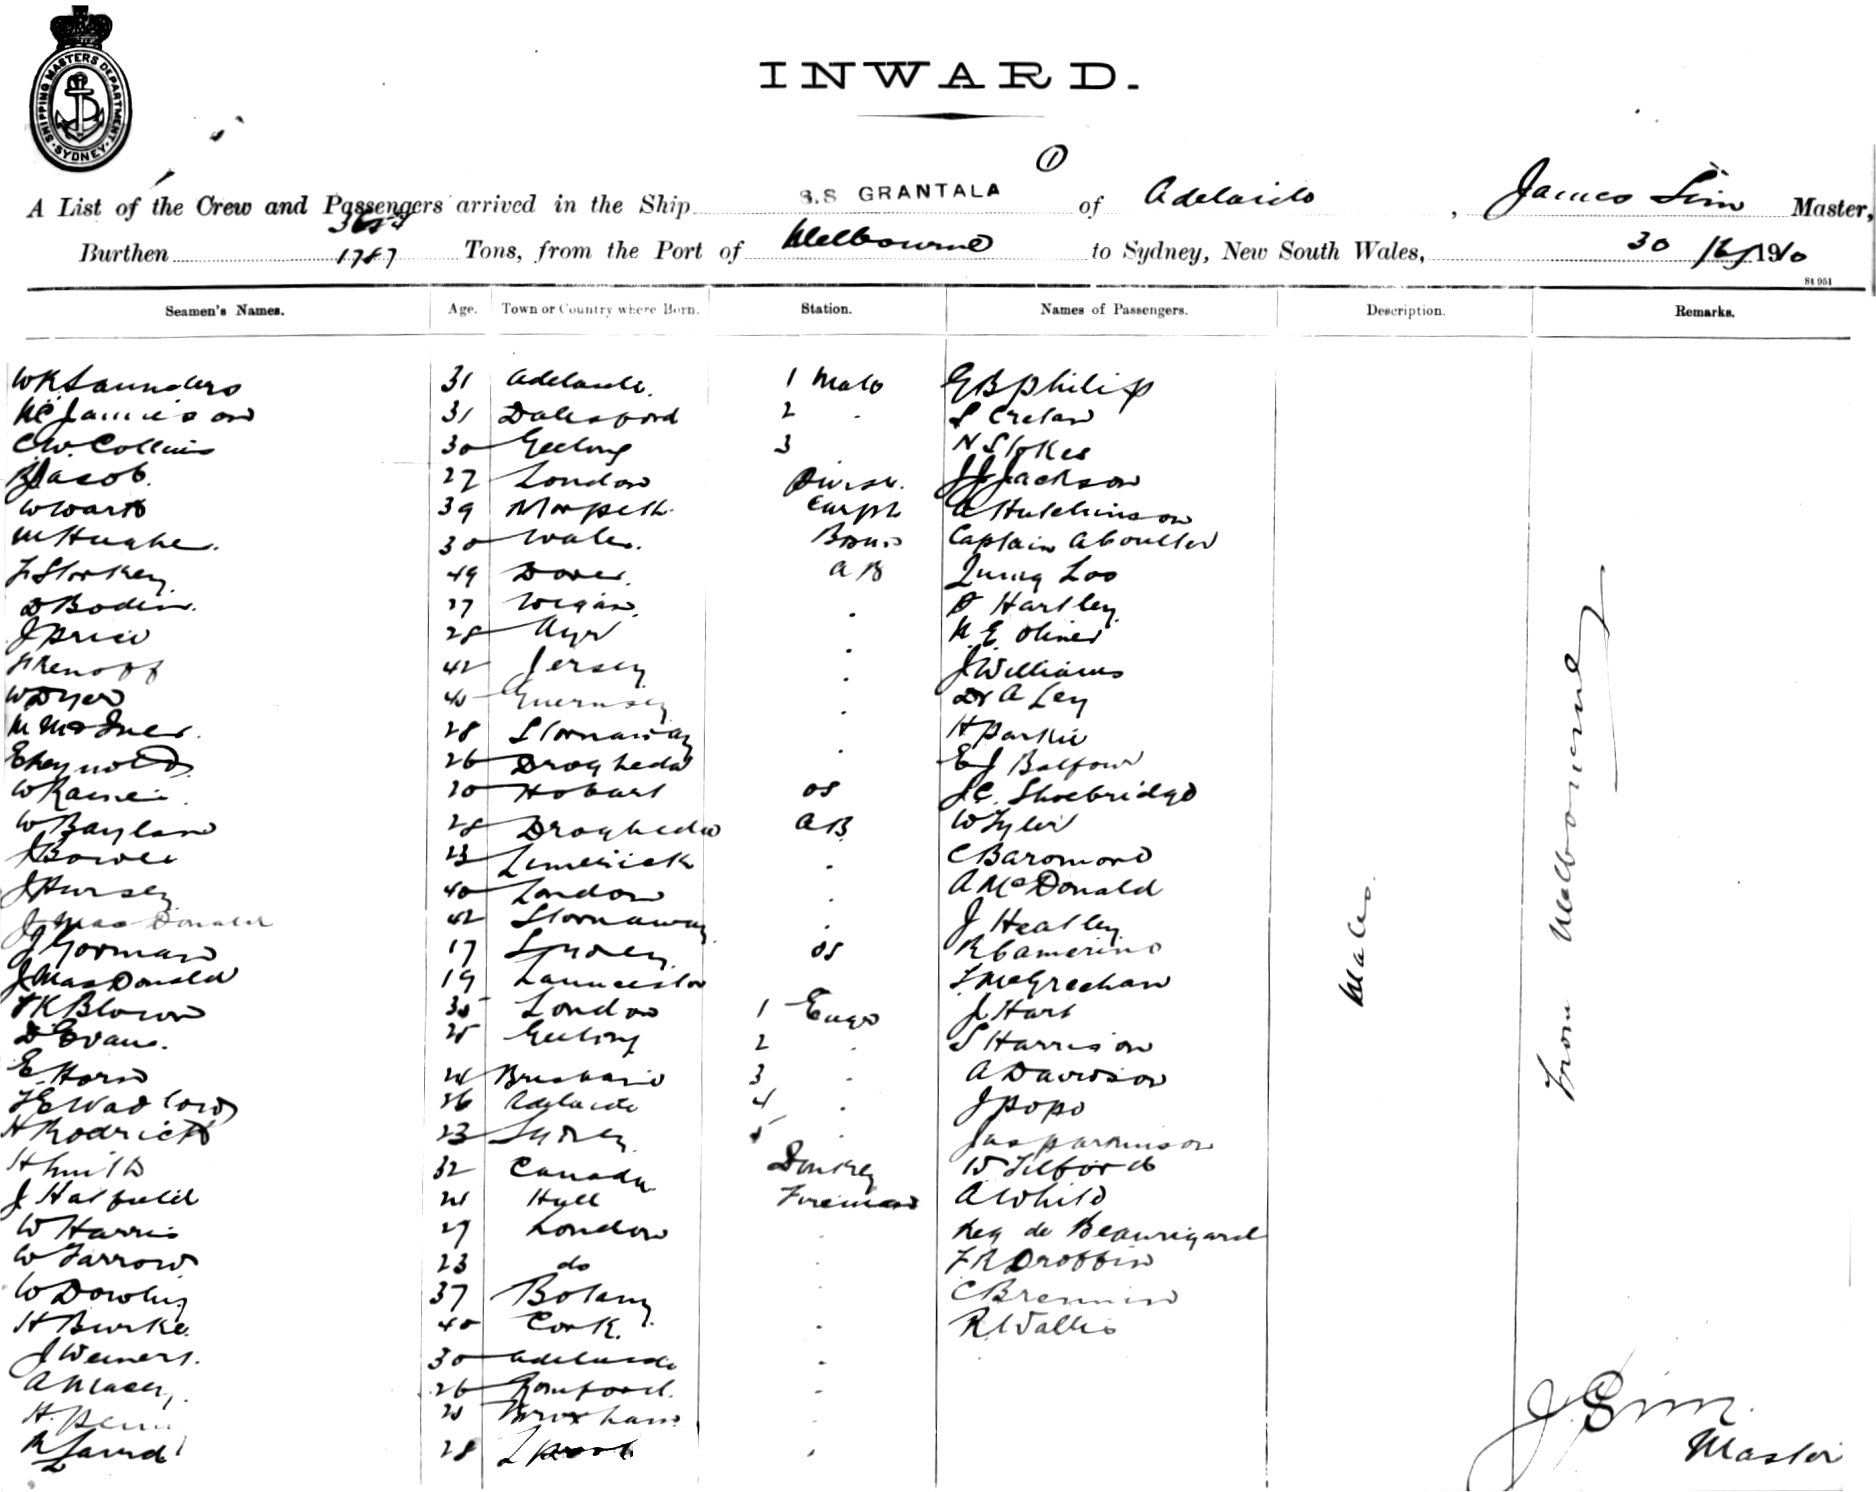 SHIPPING MASTERS DEPARTMENT. SYDNEY
INWARD.
1
A List of the Crew and Passengers arrived in the Ship S.S GRANTALA of Adelaide, James Sim Master,
3654
Burthen 1787 Tons, from the Port of Melbourne to Sydney, New South Wales, 30 1910
St 951
Seamen's Names. Age. Town or Country where Born. Station. Names of Passengers. Description. Remarks.
W R Saunders 31 Adelaide. 1 Mate G B Philip
Jamieson 31 Dalesford 2 S Crelan
C W. Collins 30 Geelong 3 N Stokes
Jacob. 27 London J Jackson
W Wart 39 Morpeth Carptr A Hutchinson
M Hughes. 30 Wales. Captain A Coulter
F Storkey 49 Dover. AB Quing Loo
D Boden. 27 Wigan. D Hartley
J Price 28 Ayr E Oliver
42 Jersey J Williams
W Dyer 40 Guernsey Dr A Ley
M 28 Stornaway H Parkie
E Reynolds 26 Drogheda E J Balfour
W 20 Hobart OS J C. Shoebridge
W Baylan 28 Drogheda AB W Tyler
Bowles 23 Limerick C Baromore
J Hursey 40 London A McDonald
J MacDonald 42 Stornaway J Heatley
J Gorman 17 Sydney OS R Camerino
J MacDonald 19 Launceston McGrechan
Blown 30 London 1 Engr J Hart
D Evans. 25 Geelong 2 S Harrison
E. Horn 24 Brisbane 3 A Davidson
F E Wadlow 26 Adelaide 4 J Pope
H Rodrick 23 Sydney 5 Jas Parkinson
H Smith 32 Canada Donkey W Tilford
J Hatfield 21 Hull Fireman A White
W Harris 27 London Reg de Beaurigard
W Farrow 23 do F R Droffin
W Dowling 37 Botany C Brennin
H Burke. 40 Cork. R Wallis
J Weiners. 30 Adelaide
A Macey. 26 Romford.
H. Penn 21 Brixham
R Laird 28
Males.
From Melbourne
J. Sim.
Master